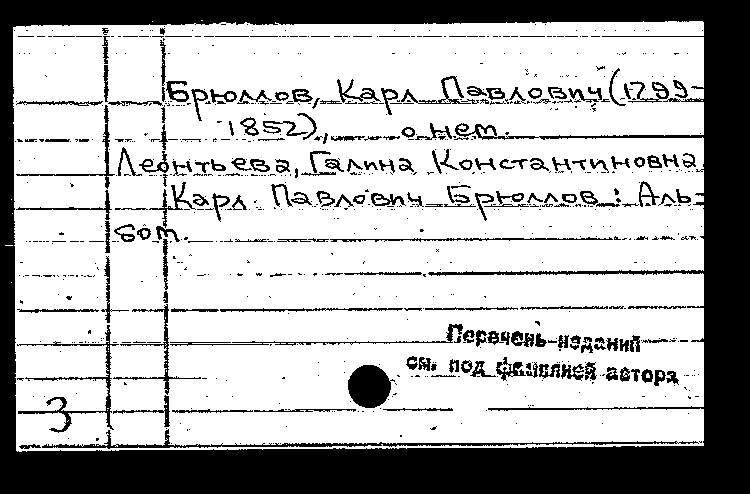 Брюллов, Карл Павлович (1799-
1852), о нем.
Леонтьева, Галина Константиновна.
Карл Павлович Брюллов: Аль-
бом.
Перечень изданий
см. под фамилией автора
3